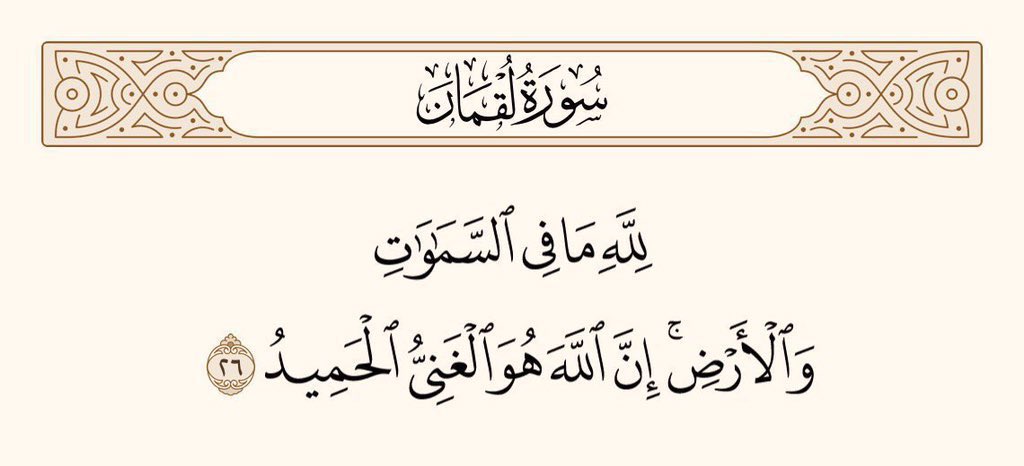 سُورَةُ لُقْمَانَ
لِلَّهِ مَا فِى ٱلسَّمَـٰوَٰتِ
وَٱلْأَرْضِ ۚ إِنَّ ٱللَّهَ هُوَ ٱلْغَنِىُّ ٱلْحَمِيدُ ٢٦